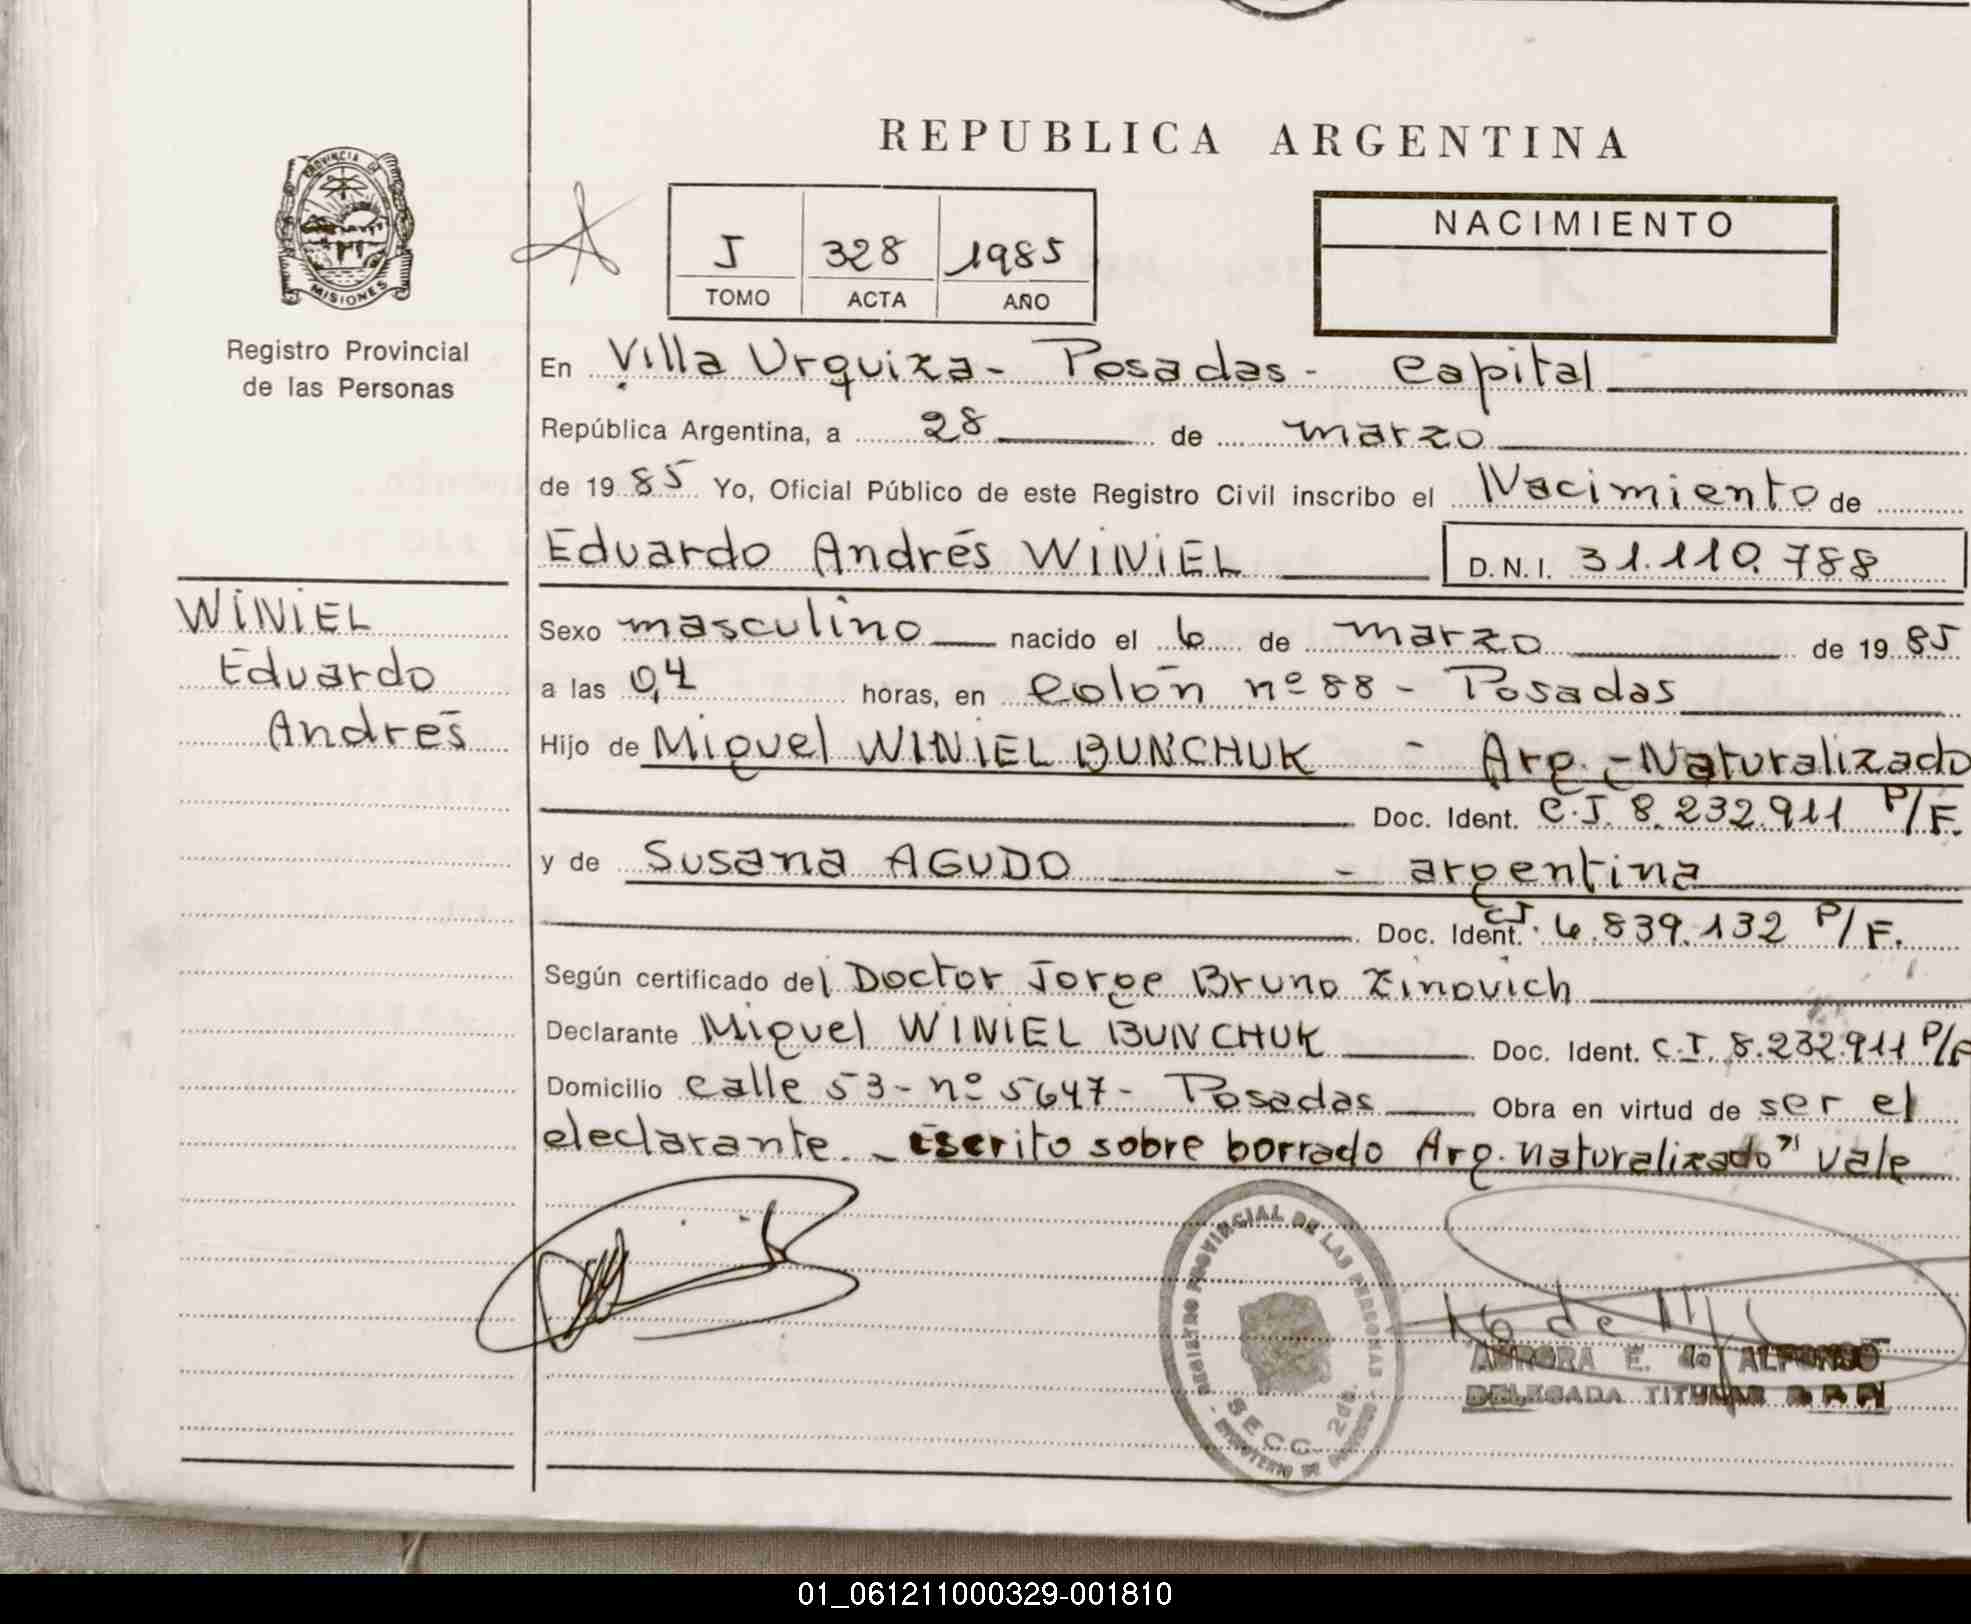 REPUBLICA ARGENTINA
PROVINCIA DE
MISIONES
Registro Provincial
de las Personas
I 328 1985
TOMO ACTA AÑO
NACIMIENTO
En Villa Urquiza - Posadas - Capital
República Argentina, a 28 de marzo
de 1985 Yo, Oficial Público de este Registro Civil inscribo el Nacimiento de
Eduardo Andrés WINIEL D.N.I. 31.110.788
WINIEL
Eduardo
Andrés
Sexo masculino nacido el 6 de marzo de 1985
a las 0,4 horas, en Colón nº 88 - Posadas
Hijo de Miguel WINIEL BUNCHUK - Arg. - Naturalizado
Doc. Ident. C.I. 8.232.911 P/F.
y de Susana AGUDO - argentina
Doc. Ident. CI. 6.839.132 P/F.
Según certificado del Doctor Jorge Bruno Zinovich
Declarante Miguel WINIEL BUNCHUK Doc. Ident. C.I. 8.232.911 P/F
Domicilio Calle 53 - nº 5647 - Posadas Obra en virtud de ser el
declarante. - Escrito sobre borrado Arg. Naturalizado" vale
REGISTRO PROVINCIAL DE LAS PERSONAS
SECC. 2da.
MINISTERIO DE GOBIERNO
AURORA E. de ALFONSO
DELEGADA TITULAR R.P.P.
01_061211000329-001810